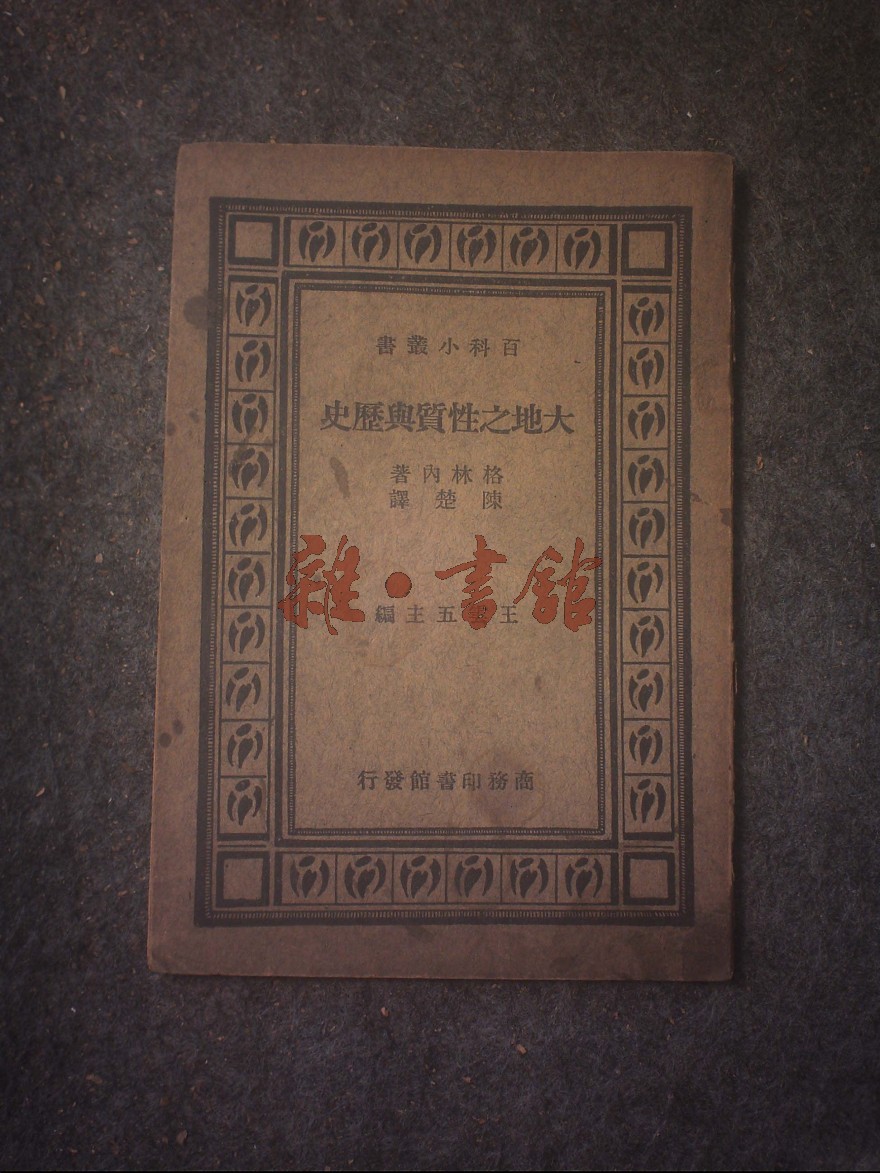 百科小叢書
大地之性質與歷史
格林內著
陳楚譯
雜•書館
王雲五主編
商務印書館發行